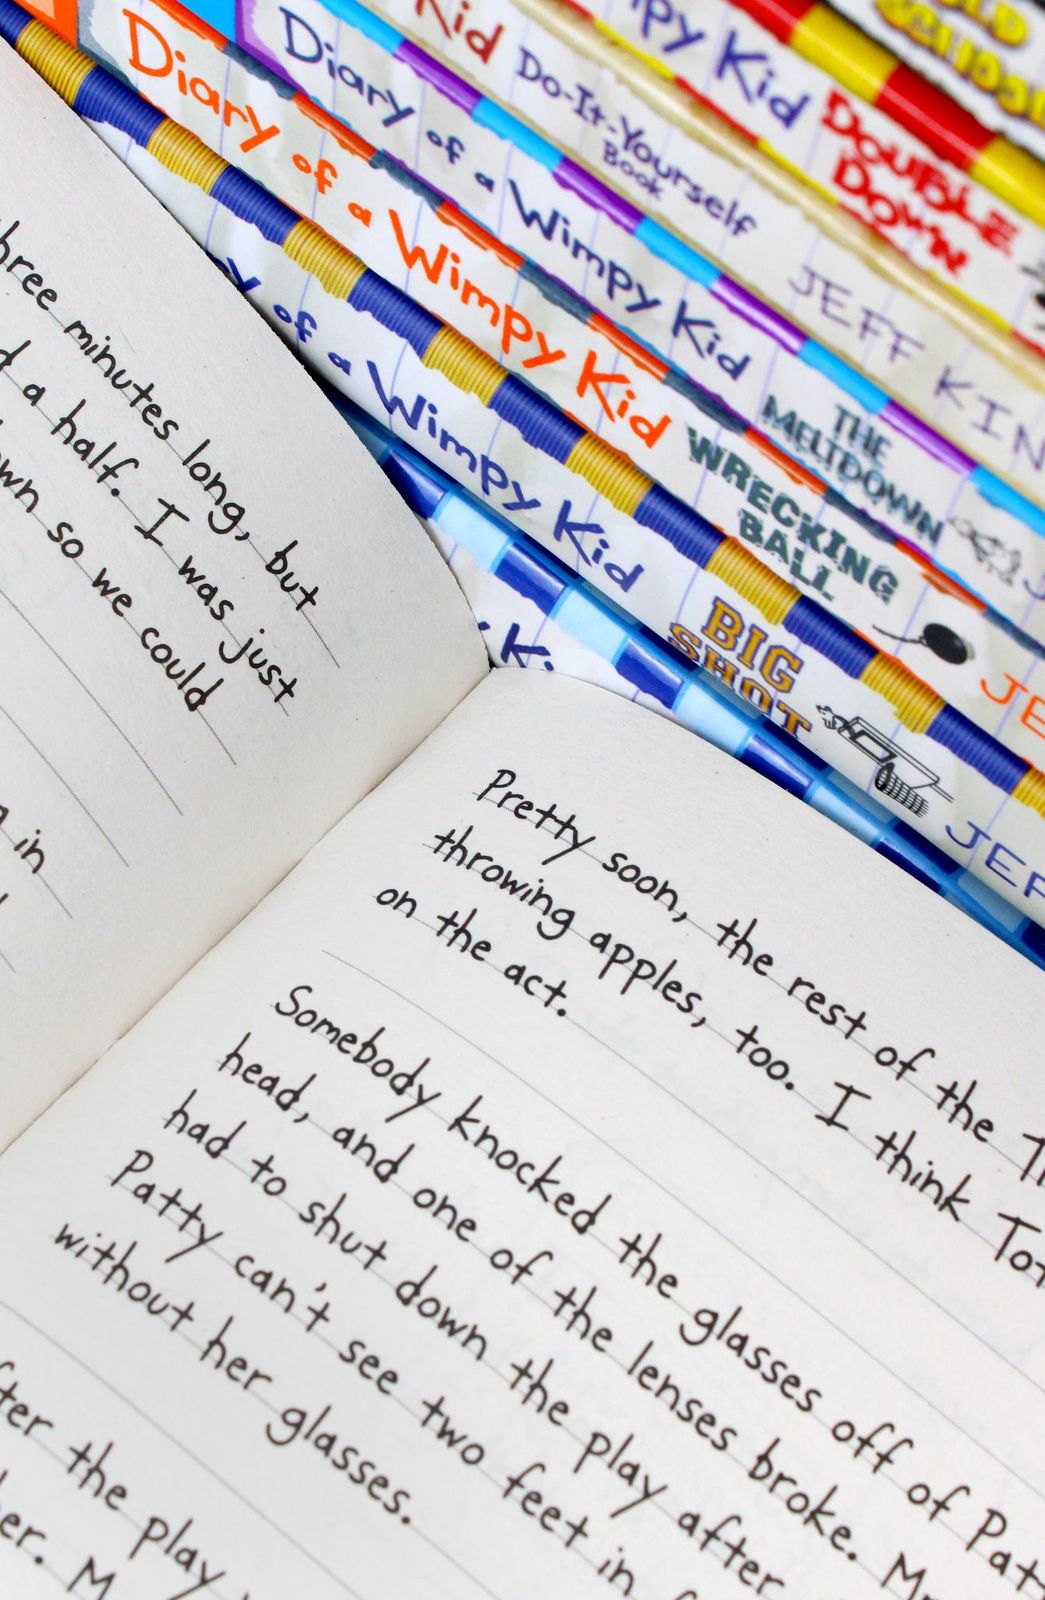 OLD
SCHOOL
Wimpy Kid
DOUBLE
DOWN
Kid
Do-It-Yourself
Book
JEFF KIN
Diary of a Wimpy Kid
THE
MELTDOWN
J
Diary of a Wimpy Kid
WRECKING
BALL
JE
of a Wimpy Kid
BIG
SHOT
JEF
K.
three minutes long, but
a half. I was just
so we could
in
Pretty soon, the rest of the
throwing apples, too. I think
on the act.
Somebody knocked the glasses off of
head, and one of the lenses broke.
had to shut down the play after
Patty can't see two feet in
without her glasses.
the play
M